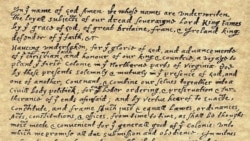 In yᵉ name of God, Amen. We whose names are underwriten,
the loyall subjects of our dread soveraigne Lord King James
by yᵉ grace of God, of great Britaine, franc, & Ireland king,
defender of yᵉ faith, &c
Haveing undertaken, for yᵉ glorie of God, and advancemente
of yᵉ christian and honour of our king & countrie, a voyage to
plant yᵉ first colonie in yᵉ Northerne parts of Virginia doe
by these presents solemnly & mutualy in yᵉ presence of God, and
one of another, covenant, & combine our selves togeather into a
civill body politick; for better ordering, & preservation & fur-
therance of yᵉ ends aforesaid; and by vertue hearof to enacte,
constitute, and frame just & equall lawes, ordinances,
acts, constitutions, & offices, from time to time, as shall be thought
most meete & convenient for yᵉ generall good of yᵉ Colonie: unto
which we promise all due submission and obedience. In witnes